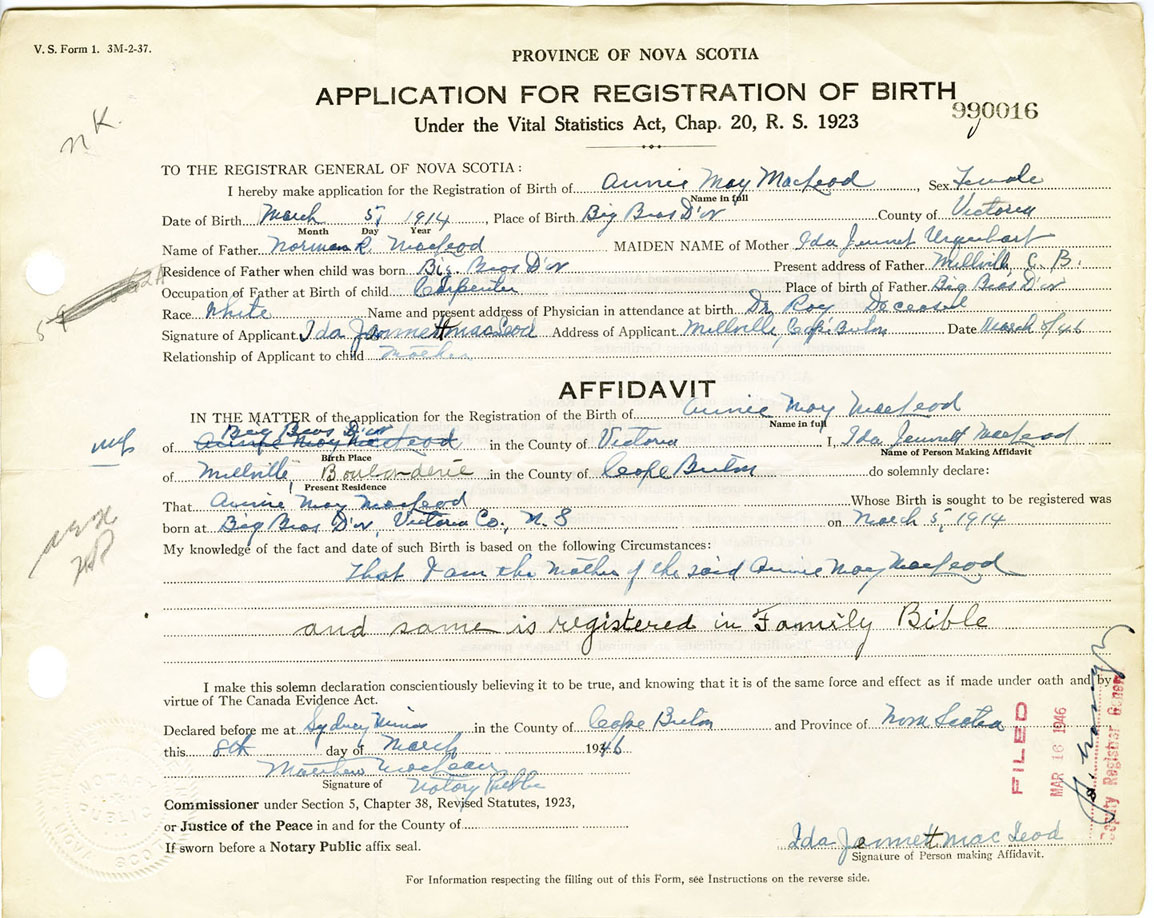 V. S. Form 1. 3M-2-37.
PROVINCE OF NOVA SCOTIA
APPLICATION FOR REGISTRATION OF BIRTH
990016
Under the Vital Statistics Act, Chap. 20, R. S. 1923
n K.
TO THE REGISTRAR GENERAL OF NOVA SCOTIA:
I hereby make application for the Registration of Birth of Annie May MacLeod, Sex Female
Name in full
Date of Birth March 5, 1914, Place of Birth Big Bras D'or County of Victoria
Month Day Year
Name of Father Norman R. MacLeod MAIDEN NAME of Mother Ida Jennet Urquhart
Residence of Father when child was born Big Bras D'or Present address of Father Millville, C. B.
Occupation of Father at Birth of child Carpenter Place of birth of Father Big Bras D'or
Race White Name and present address of Physician in attendance at birth Dr. Roy Deceased
Signature of Applicant Ida Jannett macLeod Address of Applicant Millville, Cape Breton Date March 8/46
Relationship of Applicant to child Mother
AFFIDAVIT
IN THE MATTER of the application for the Registration of the Birth of Annie May MacLeod
Name in full
Big Bras D'or
of Annie May MacLeod in the County of Victoria I, Ida Jennett MacLeod
Birth Place Name of Person Making Affidavit
of Millville, Boularderie in the County of Cape Breton do solemnly declare:
Present Residence
That Annie May MacLeod Whose Birth is sought to be registered was
born at Big Bras D'or, Victoria Co., N. S on March 5, 1914
My knowledge of the fact and date of such Birth is based on the following Circumstances:
That I am the Mother of the said Annie May MacLeod
and same is registered in Family Bible
I make this solemn declaration conscientiously believing it to be true, and knowing that it is of the same force and effect as if made under oath and by
virtue of The Canada Evidence Act.
Declared before me at Sydney Mines in the County of Cape Breton and Province of Nova Scotia
this 8th day of March 1946
Matthew MacLean
Signature of Notary Public
Commissioner under Section 5, Chapter 38, Revised Statutes, 1923,
or Justice of the Peace in and for the County of
If sworn before a Notary Public affix seal.
FILED
MAR 16 1946
Deputy Registrar General
Ida Jannett mac Leod
Signature of Person making Affidavit.
For Information respecting the filling out of this Form, see Instructions on the reverse side.